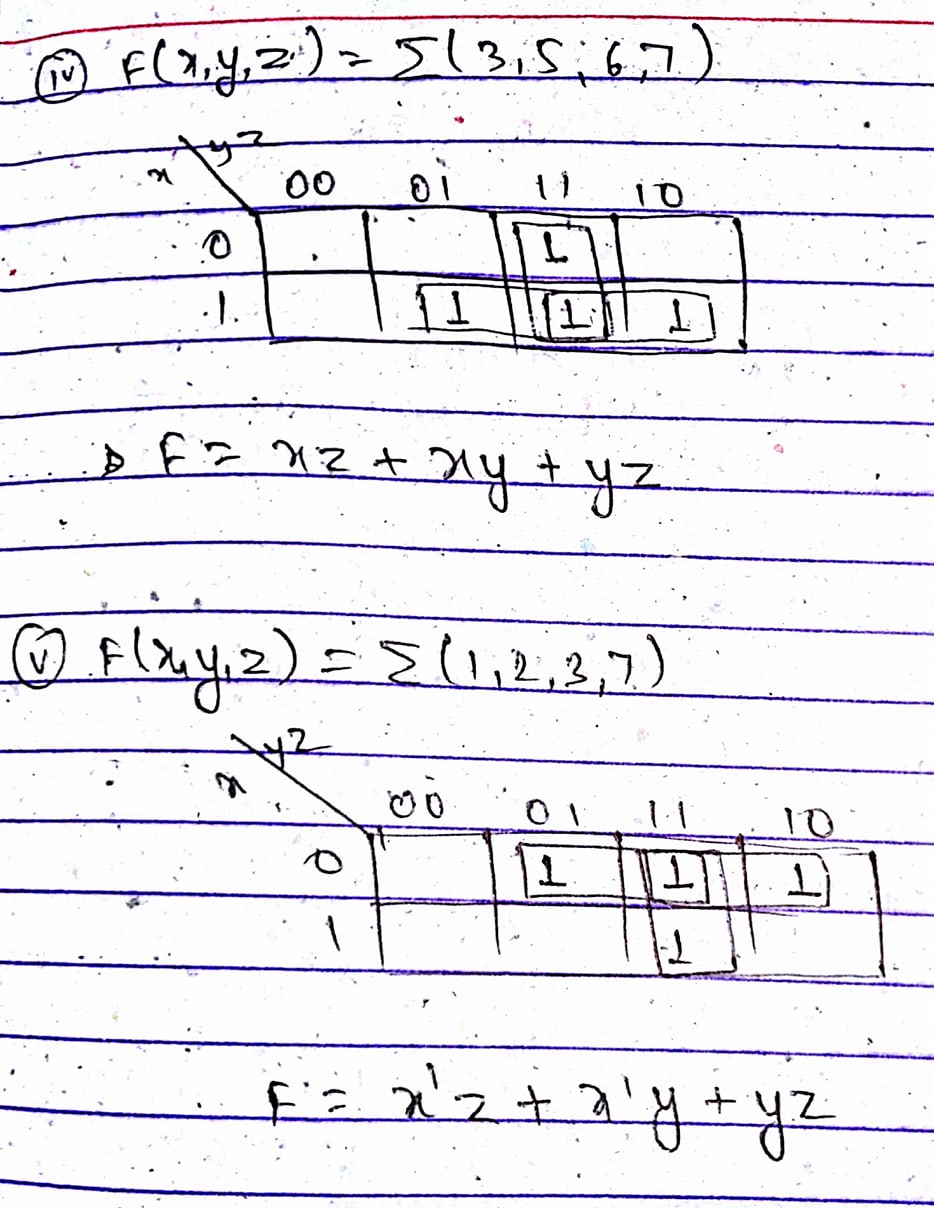 (iv) F(x,y,z) = Σ(3,5,6,7)
yz
x 00 01 11 10
0 1
1 1 1 1
F = xz + xy + yz
(v) F(x,y,z) = Σ(1,2,3,7)
yz
x
00 01 11 10
0 1 1 1
1 1
F = x'z + x'y + yz